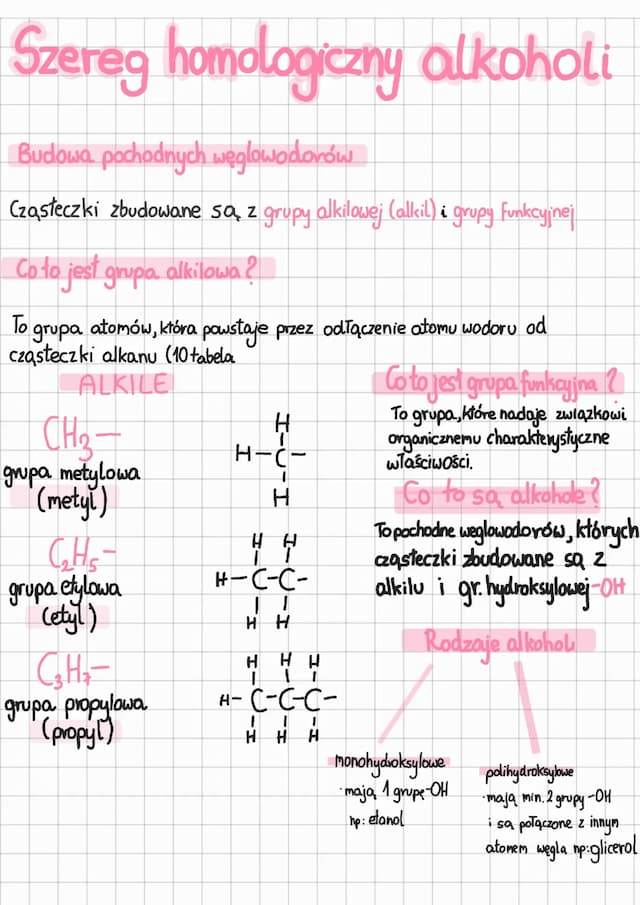 Szereg homologiczny alkoholi
Budowa pochodnych węglowodorów
Cząsteczki zbudowane są z grupy alkilowej (alkil) i grupy funkcyjnej
Co to jest grupa alkilowa?
To grupa atomów, która powstaje przez odłączenie atomu wodoru od
cząsteczki alkanu (10 tabela
ALKILE
CH₃—
grupa metylowa
(metyl)
H
H-C-
H
C₂H₅-
grupa etylowa
(etyl)
H H
H-C-C-
H H
C₃H₇-
grupa propylowa
(propyl)
H H H
H-C-C-C-
H H H
Co to jest grupa funkcyjna?
To grupa, które nadaje związkowi
organicznemu charakterystyczne
właściwości.
Co to są alkohole?
To pochodne węglowodorów, których
cząsteczki zbudowane są z
alkilu i gr. hydroksylowej -OH
Rodzaje alkoholi
monohydroksylowe
·mają 1 grupę -OH
np: etanol
polihydroksylowe
·mają min. 2 grupy -OH
i są połączone z innym
atomem węgla np: glicerol